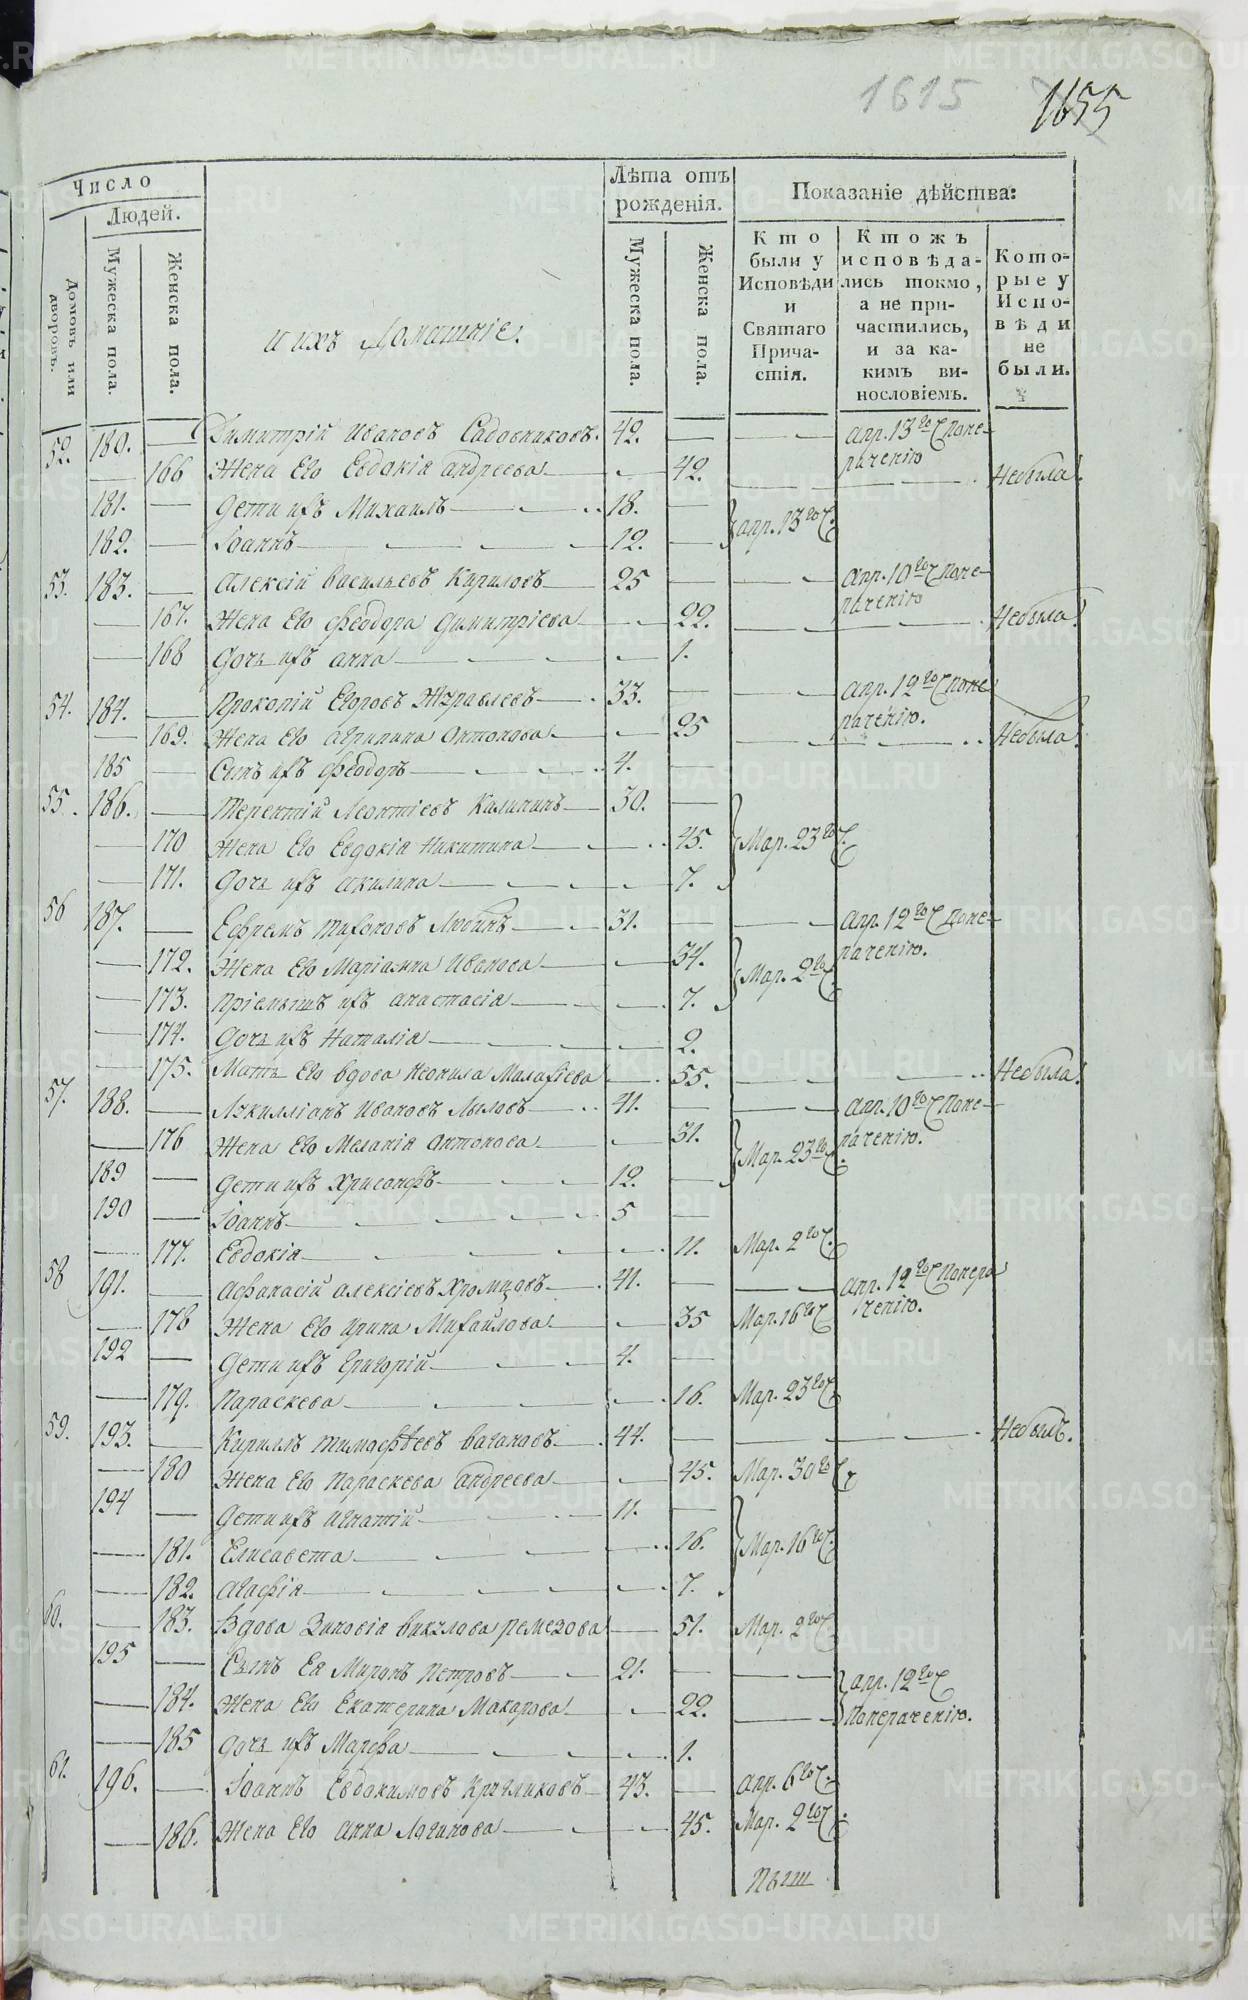 1615 1655
Число
Людей.
Домовъ или дворовъ.
Мужеска пола.
Женска пола.
Лѣта отъ рожденія.
Мужеска пола.
Женска пола.
Показаніе дѣйства:
Кто были у Исповѣди и Святаго Причастія.
Ктожъ исповѣдались токмо, а не причастились, и за какимъ винословіемъ.
Которые у Исповѣди не были.
и ихъ домашніе.
52. 180. — Димитрій Ивановъ Садовниковъ. 42. — — апр. 13го По нерачению
— 166 Жена Его Евдокія Андреева — 42. — — Не была.
181. — Дети ихъ Михаилъ — 18. — апр. 13го
182. — Іоаннъ — 12. —
53. 183. — Алексій Васильевъ Кириловъ — 25 — — апр. 10го По нерачению
— 167. Жена Его Феодора Димитріева — 22. — — Не была.
— 168 Дочь ихъ Анна — 1.
54. 184. — Прокопій Егоровъ Журавлевъ — 33. — — апр. 12го По нерачению.
— 169. Жена Его Агрипина Антонова — 25 — — Не была.
185 — Сынъ ихъ Феодоръ — 4. —
55. 186. — Терентій Леонтіевъ Калининъ — 30. —
— 170 Жена Его Евдокія Никитина — 45. Мар. 23го
— 171. Дочь ихъ Акилина — 7.
56 187. — Ефремъ Тихоновъ Любинъ — 31. — — апр. 12го По нерачению.
— 172. Жена Его Маріанна Иванова — 34. Мар. 2го
— 173. Пріемышъ ихъ Анастасія — 7.
— 174. Дочь ихъ Наталія — 2.
— 175. Мать Его вдова Неонила Малафіева — 55. — — Не была.
57. 188. — Лукилліанъ Ивановъ Лыловъ — 41. — — апр. 10го По нерачению.
— 176 Жена Его Меланія Антонова — 31. Мар. 23го
189 — Дети ихъ Хрисанфъ — 12. —
190 — Іоаннъ — 5 —
— 177. Евдокія — 11. Мар. 2го
58 191. — Афанасій Алексіевъ Хромцовъ — 41. — — апр. 12го По нерачению.
— 178 Жена Его Ирина Михайлова — 35 Мар. 16го
192 — Дети ихъ Григорій — 4. —
— 179. Параскева — 16. Мар. 23го
59. 193. — Кириллъ Тимофѣевъ Вагановъ — 44. — — — Не былъ.
— 180 Жена Его Параскева Андреева — 45. Мар. 30го
194 — Дети ихъ Игнатій — 11. —
— 181. Елисавета — 16. Мар. 16го
— 182. Агафія — 7.
60. — 183. Вдова Зиновія Викулова Ремезова — 51. Мар. 2го
195 — Сынъ Ея Миронъ Петровъ — 21. — — апр. 12го
— 184. Жена Его Екатерина Макарова — 22. — По нерачению.
— 185 Дочь ихъ Марфа — 1.
61. 196. — Іоаннъ Евдокимовъ Кругликовъ — 43. — апр. 6го
— 186. Жена Его Анна Логинова — 45. Мар. 2го